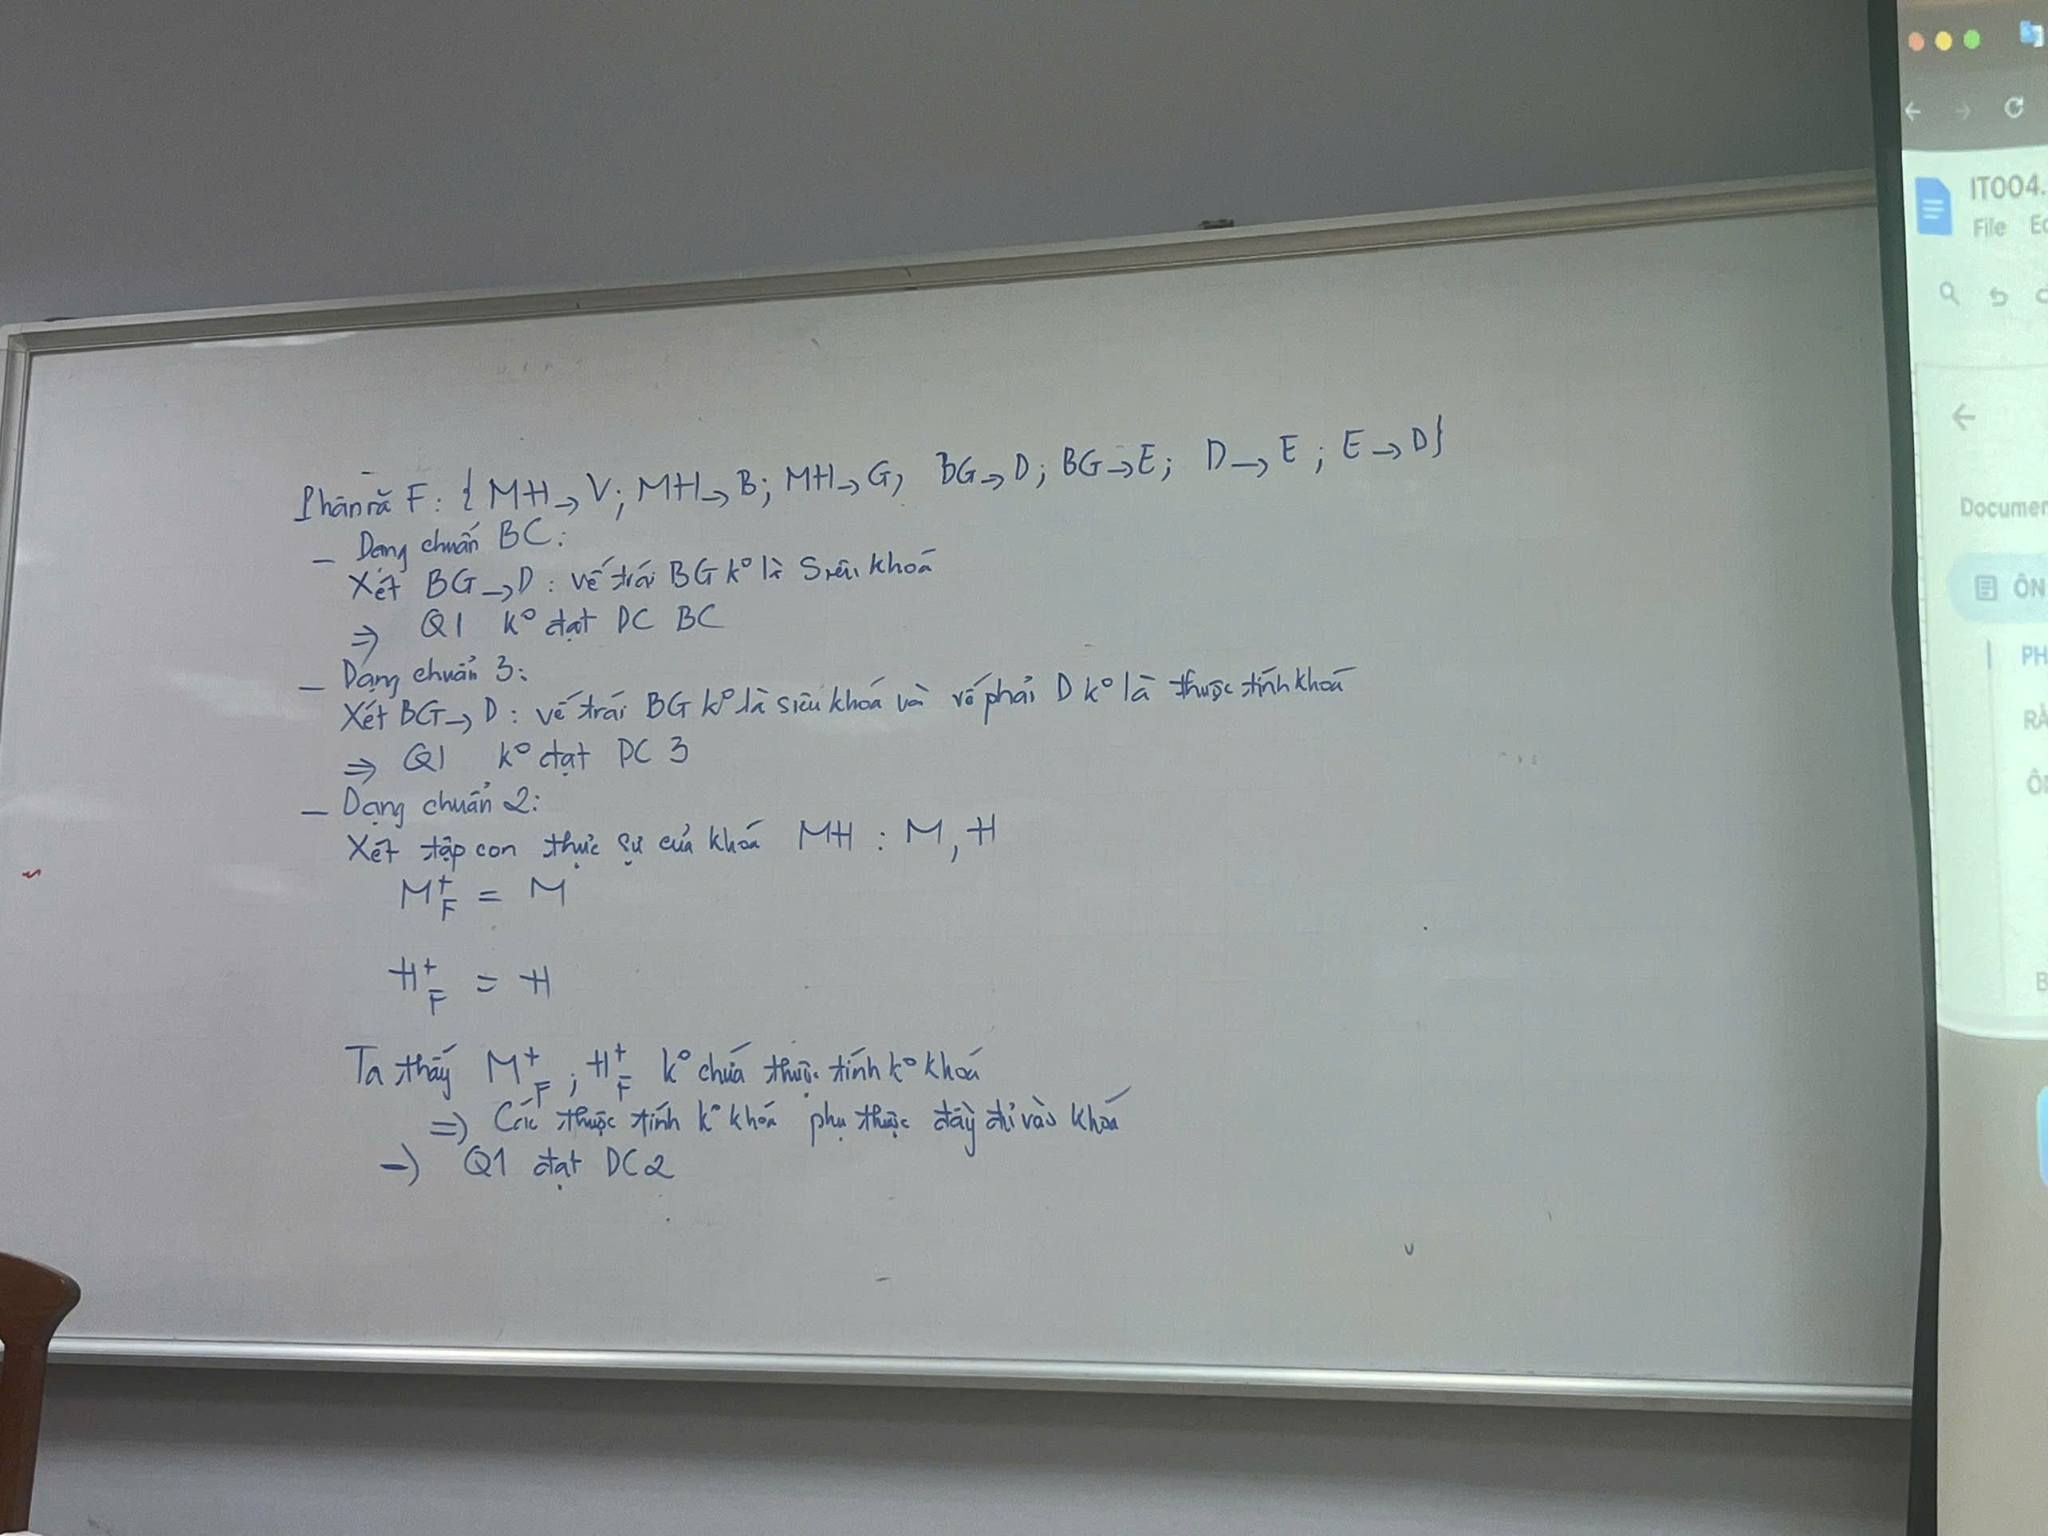 Phân rã F: { MH → V; MH → B; MH → G, BG → D; BG → E; D → E; E → D}
– Dạng chuẩn BC:
Xét BG → D: vế trái BG k° là Siêu khoá
⇒ Q1 k° đạt DC BC
– Dạng chuẩn 3:
Xét BG → D: vế trái BG k° là siêu khoá và vế phải D k° là thuộc tính khoá
⇒ Q1 k° đạt DC 3
– Dạng chuẩn 2:
Xét tập con thực sự của khoá MH : M, H
M⁺_F = M
H⁺_F = H
Ta thấy M⁺_F ; H⁺_F k° chứa thuộc tính k° khoá
⇒ Các thuộc tính k° khoá phụ thuộc đầy đủ vào khoá
→ Q1 đạt DC2
IT004.
File
Documen
ÔN
PH